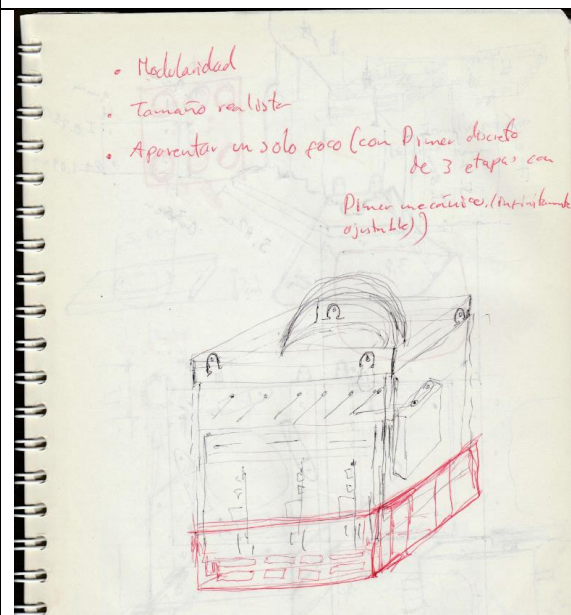 • Modularidad
• Tamaño realista
• Aparentar un solo foco (con Dimer discreto
de 3 etapas con
Dimer mecánico. (infinitamente
ajustable))